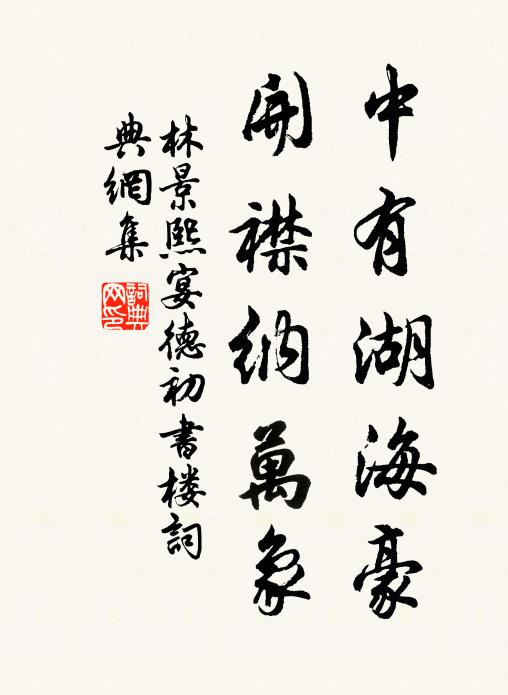 中有湖海豪
開襟納萬象
林景熙宴德初書楼詞
典網集
詞典網印